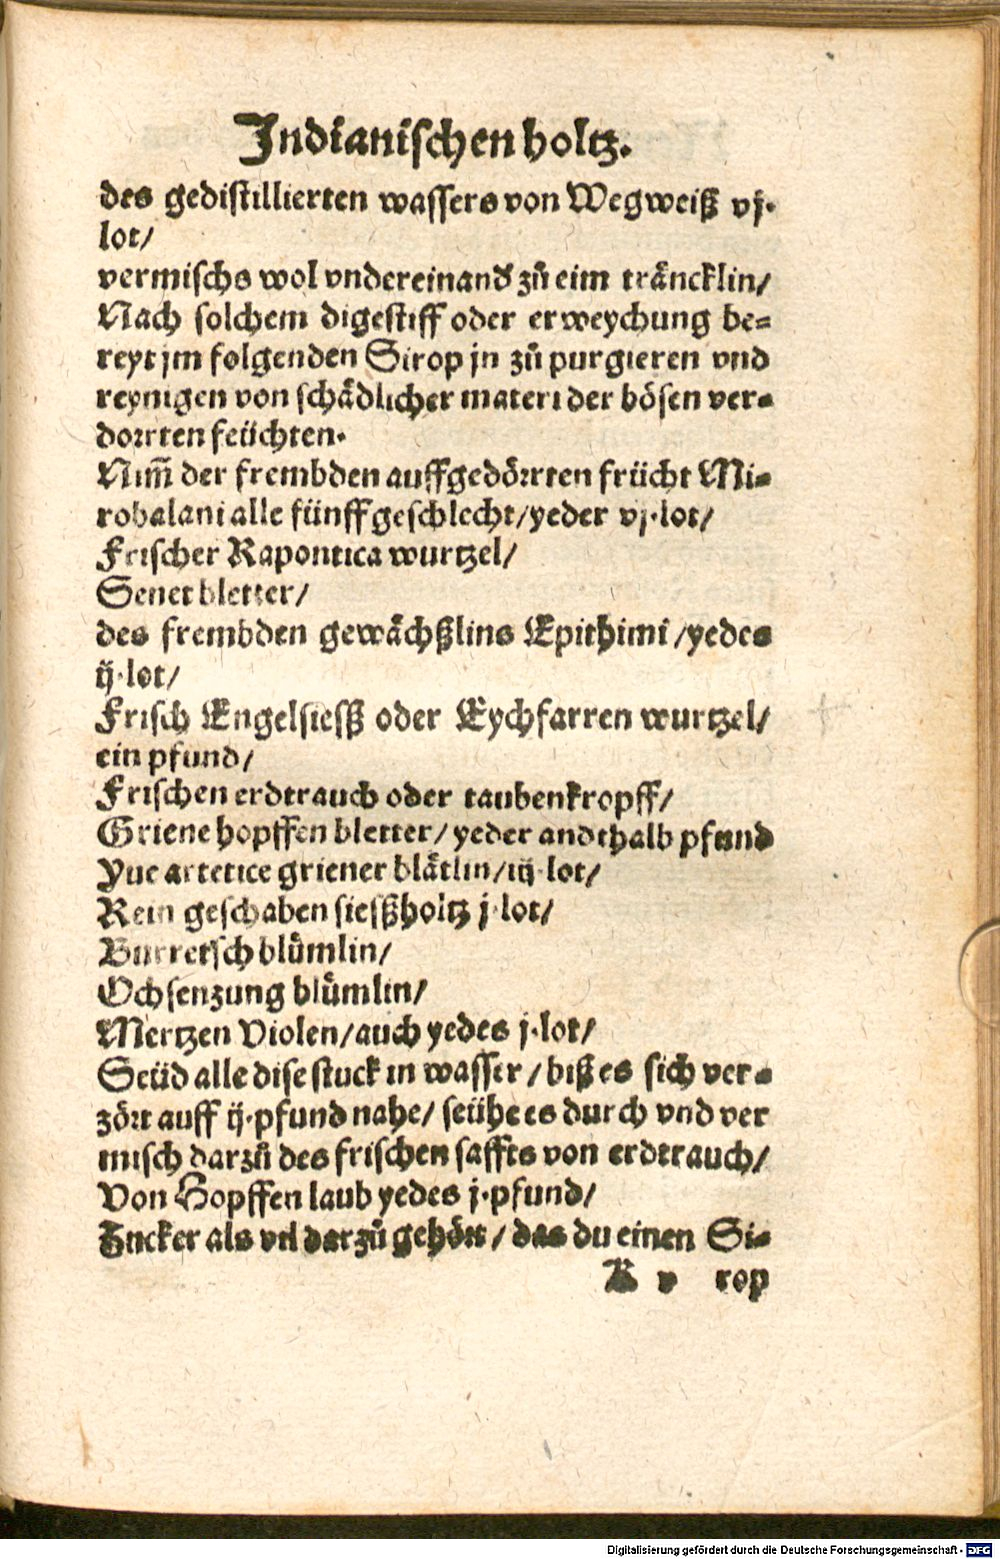 Indianischen holtz.
des gedistillierten wassers von Wegweiß vj·
lot/
vermischs wol vndereinand' zů eim träncklin/
Nach solchem digestiff oder erweychung be⸗
reyt jm folgenden Sirop jn zů purgieren vnd
reynigen von schädlicher materi der bösen ver⸗
dorrten feüchten·
Nim̃ der frembden auffgedörrten frücht Mi⸗
robalani alle fünff geschlecht/yeder vj·lot/
Frischer Rapontica wurtzel/
Senet bletter/
des frembden gewächßlins Epithimi/yedes
ij·lot/
Frisch Engelsiesß oder Eychfarren wurtzel/
ein pfund/
Frischen erdtrauch oder taubenkropff/
Griene hopffen bletter/yeder andthalb pfund
Yue artetice griener blätlin/iij·lot/
Rein geschaben siesßholtz j·lot/
Burretsch blůmlin/
Ochsenzung blůmlin/
Mertzen Violen/auch yedes j·lot/
Seüd alle dise stuck in wasser/biß es sich ver⸗
zört auff ij·pfund nahe/seühe es durch vnd ver
misch darzů des frischen saffts von erdtrauch/
Von Hopffen laub yedes j·pfund/
Zucker als vil darzů gehört/das du einen Si⸗
K v rop
Digitalisierung gefördert durch die Deutsche Forschungsgemeinschaft - DFG